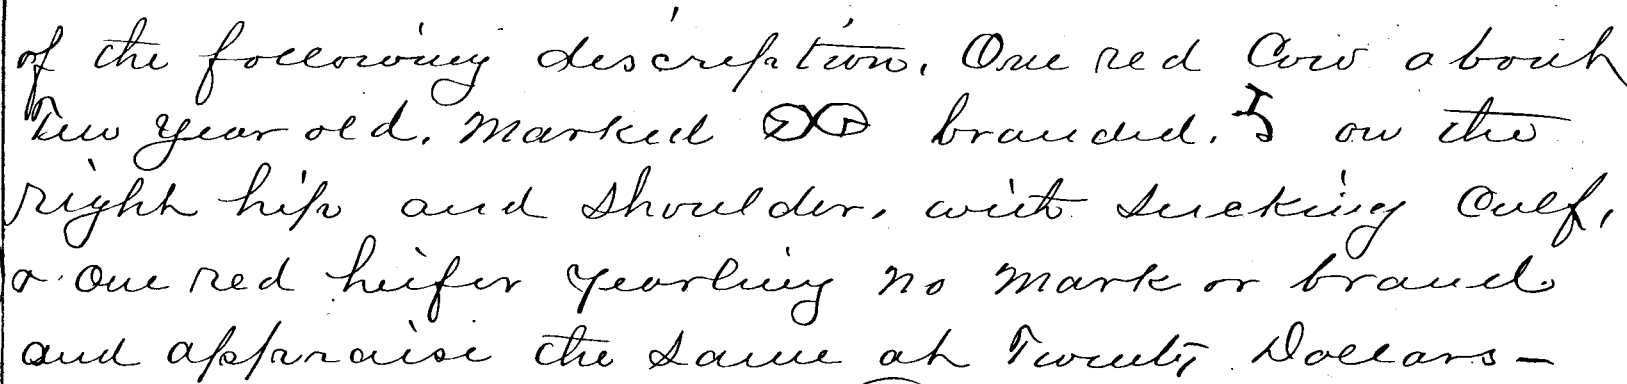 of the following description. One red Cow about
Ten year old. Marked branded. on the
right hip and shoulder. with sucking Calf,
& One red heifer yearling no mark or brand
and appraise the same at Twenty Dollars —